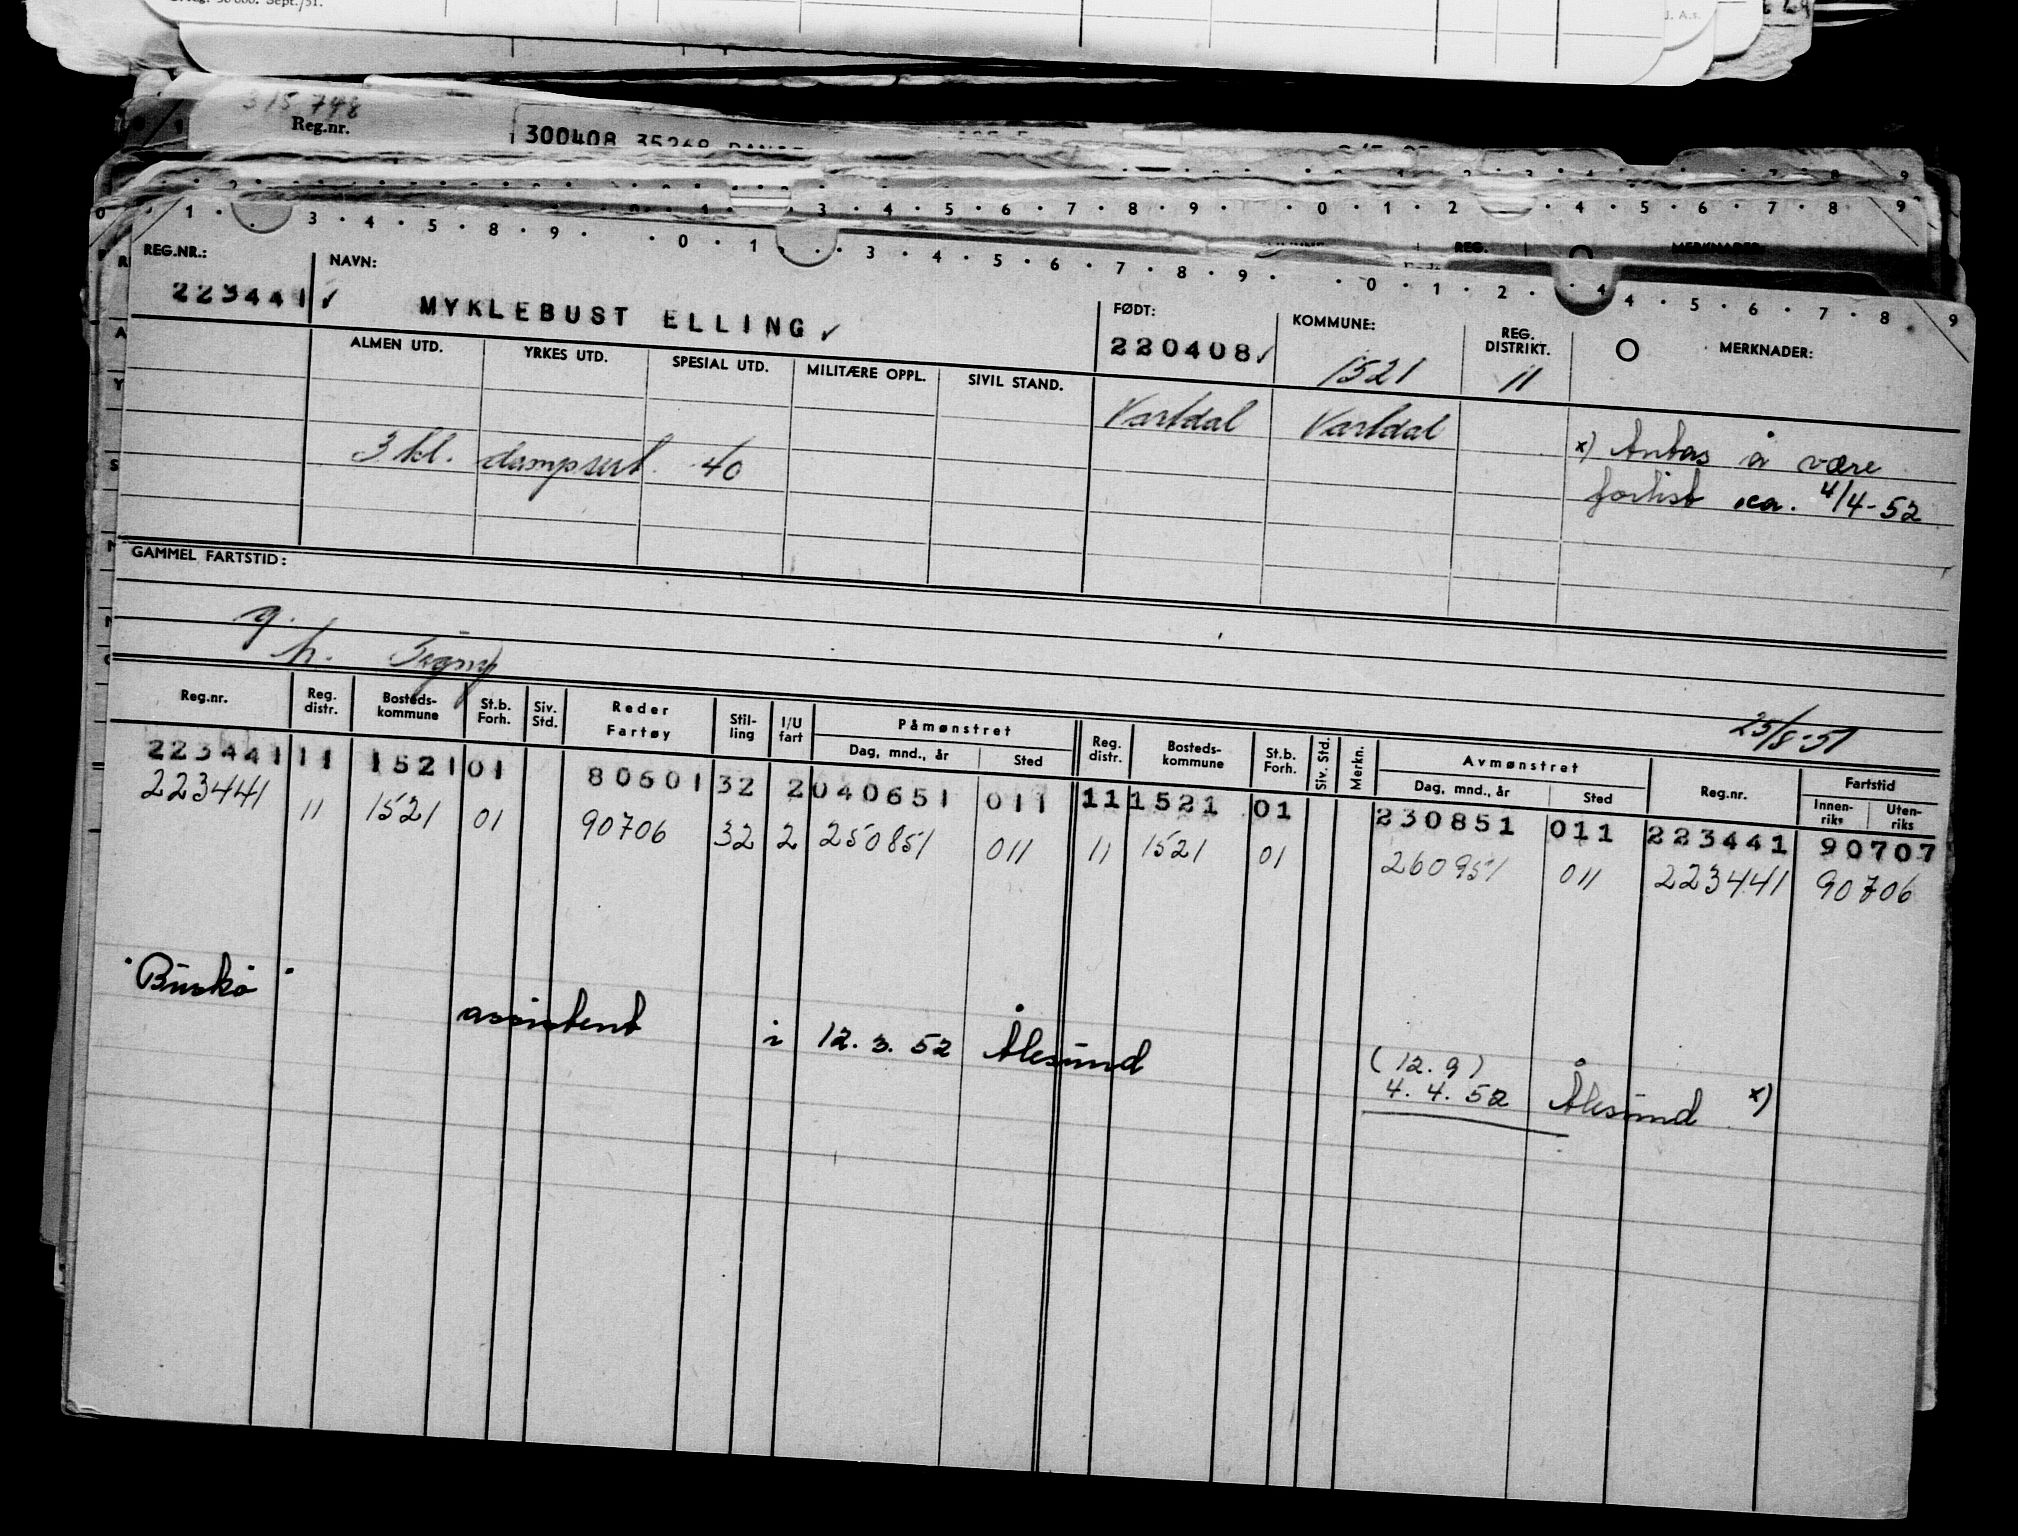 315 748
Reg.nr.
300408 35268
REG.NR.: NAVN:
223441 ✓ MYKLEBUST ELLING ✓
FØDT: KOMMUNE: REG. DISTRIKT. MERKNADER:
220408 ✓ 1521 11
ALMEN UTD. YRKES UTD. SPESIAL UTD. MILITÆRE OPPL. SIVIL STAND.
Vartdal Vartdal
3 kl. dampsert. 40
x) Antas å være
forlist ca. 4/4-52
GAMMEL FARTSTID:
g.
h.
25/8-51
Reg.nr. Reg. distr. Bosteds-kommune St.b. Forh. Siv. Std. Reder Fartøy Stil-ling I/U fart Påmønstret Dag, mnd., år Sted Reg. distr. Bosteds-kommune St.b. Forh. Siv. Std. Merkn. Avmønstret Dag, mnd., år Sted Reg.nr. Fartstid Innen-riks Uten-riks
223441 11 1521 01 80601 32 2 040651 011 11 1521 01 230851 011 223441 90707
223441 11 1521 01 90706 32 2 250851 011 11 1521 01 260951 011 223441 90706
"Buskø" assistent i 12.3.52 Ålesund (12.9)
4.4.52 Ålesund x)